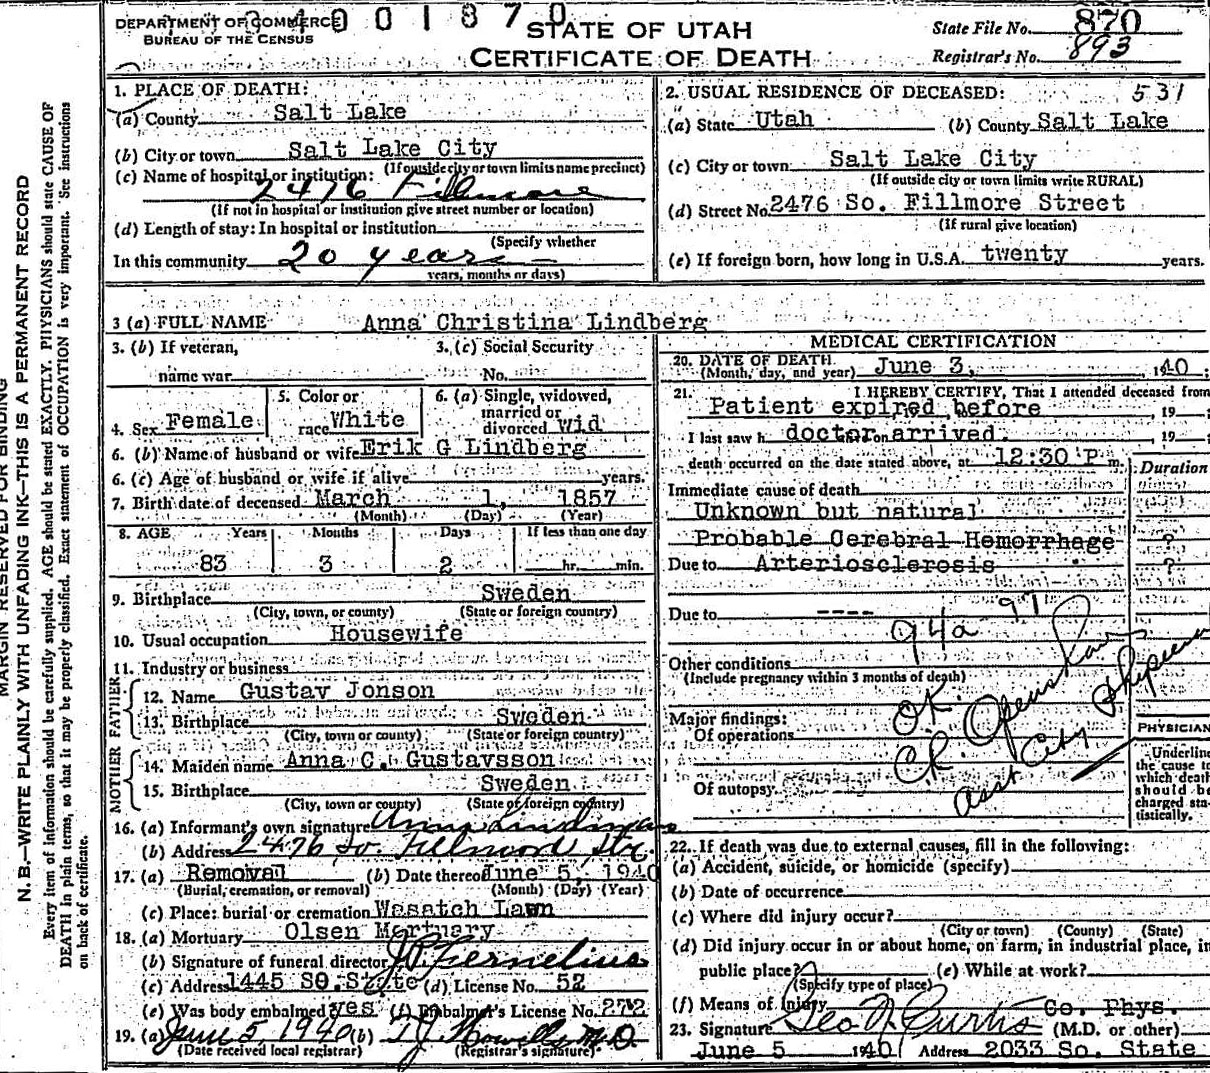 DEPARTMENT OF COMMERCE
BUREAU OF THE CENSUS
STATE OF UTAH
CERTIFICATE OF DEATH
State File No. 870
Registrar's No. 893
MARGIN RESERVED FOR BINDING
N. B.—WRITE PLAINLY WITH UNFADING INK—THIS IS A PERMANENT RECORD
Every item of information should be carefully supplied. AGE should be stated EXACTLY. PHYSICIANS should state CAUSE OF
DEATH in plain terms, so that it may be properly classified. Exact statement of OCCUPATION is very important. See instructions
on back of certificate.
1. PLACE OF DEATH:
(a) County Salt Lake
(b) City or town Salt Lake City
(If outside city or town limits name precinct)
(c) Name of hospital or institution:
2476 Fillmore
(If not in hospital or institution give street number or location)
(d) Length of stay: In hospital or institution
(Specify whether
In this community 20 years
years, months or days)
2. USUAL RESIDENCE OF DECEASED: 531
(a) State Utah (b) County Salt Lake
(c) City or town Salt Lake City
(If outside city or town limits write RURAL)
(d) Street No. 2476 So. Fillmore Street
(If rural give location)
(e) If foreign born, how long in U.S.A. twenty years.
3 (a) FULL NAME Anna Christina Lindberg
3. (b) If veteran,
name war
3. (c) Social Security
No.
4. Sex Female
5. Color or
race White
6. (a) Single, widowed,
married or
divorced Wid
6. (b) Name of husband or wife Erik G Lindberg
6. (c) Age of husband or wife if alive years.
7. Birth date of deceased March 1, 1857
(Month) (Day) (Year)
8. AGE Years Months Days If less than one day
83 3 2 hr. min.
9. Birthplace Sweden
(City, town, or county) (State or foreign country)
10. Usual occupation Housewife
11. Industry or business
FATHER
12. Name Gustav Jonson
13. Birthplace Sweden
(City, town, or county) (State or foreign country)
MOTHER
14. Maiden name Anna C. Gustavsson
15. Birthplace Sweden
(City, town or county) (State or foreign country)
16. (a) Informant's own signature Anna Lindman
(b) Address 2476 So. Fillmore Str.
17. (a) Removal (b) Date thereof June 5, 1940
(Burial, cremation, or removal) (Month) (Day) (Year)
(c) Place: burial or cremation Wasatch Lawn
18. (a) Mortuary Olsen Mortuary
(b) Signature of funeral director J.P. Fernelius
(c) Address 1445 SO. State (d) License No. 52
(e) Was body embalmed? yes (f) Embalmer's License No. 272
19. (a) June 5, 1940 (b) T J Howells M.D.
(Date received local registrar) (Registrar's signature)
MEDICAL CERTIFICATION
20. DATE OF DEATH
(Month, day, and year) June 3, 1940;
21. I HEREBY CERTIFY, That I attended deceased from
Patient expired before , 19
I last saw h doctor on arrived. , 19
death occurred on the date stated above, at 12:30 P m.
Duration
Immediate cause of death
Unknown but natural
Probable Cerebral Hemorrhage ?
Due to Arteriosclerosis ?
Due to ----
94a 97
Other conditions
(Include pregnancy within 3 months of death)
Major findings:
Of operations
Of autopsy
OK.
C.R. Openshaw
Asst City Physician
PHYSICIAN
Underline
the cause to
which death
should be
charged sta-
tistically.
22. If death was due to external causes, fill in the following:
(a) Accident, suicide, or homicide (specify)
(b) Date of occurrence
(c) Where did injury occur?
(City or town) (County) (State)
(d) Did injury occur in or about home, on farm, in industrial place, in
public place? (e) While at work?
(Specify type of place)
(f) Means of Injury Co. Phys.
23. Signature Geo N Curtis (M.D. or other)
June 5 1940 Address 2033 So. State